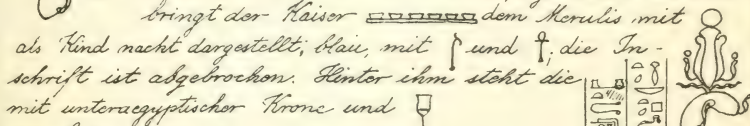 bringt der Kaiser dem Merulis mit
als Kind nackt dargestellt, blau, mit und ; die In-
schrift ist abgebrochen. Hinter ihm steht die
mit unteraegyptischer Krone und